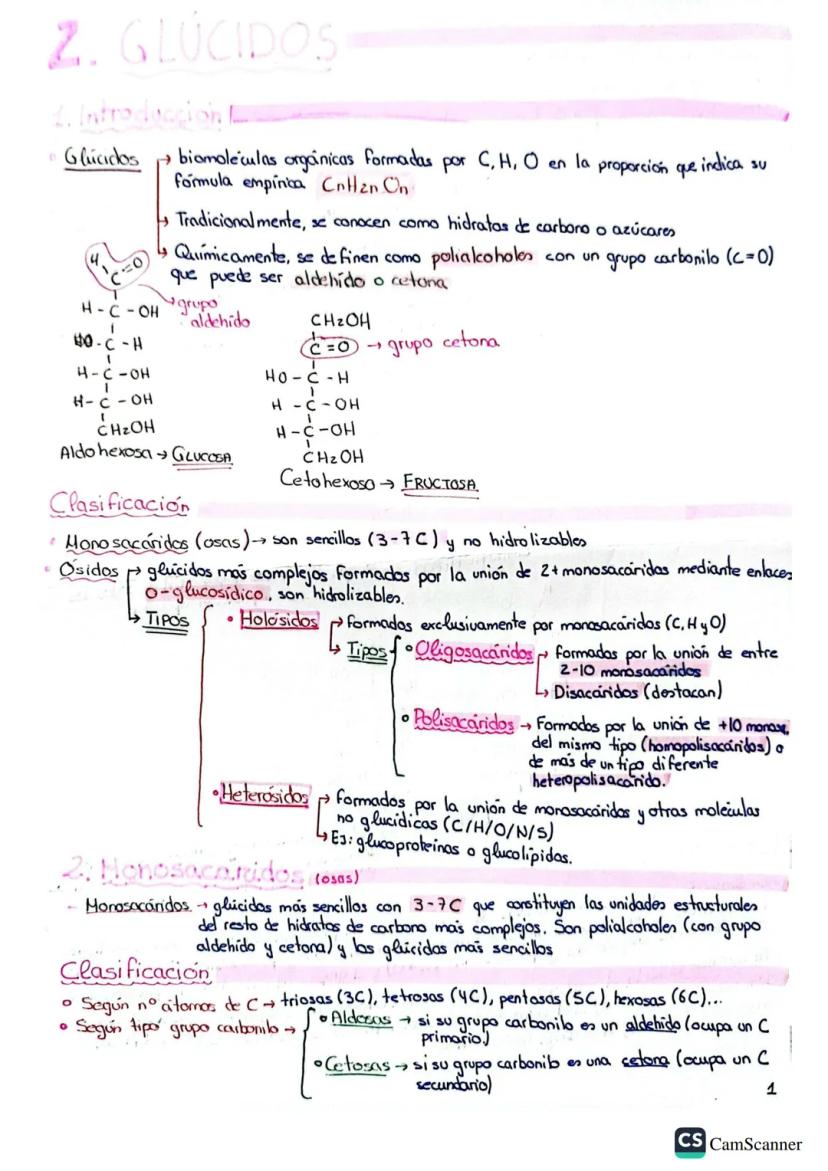 2. GLÚCIDOS
1. Introducción
Glúcidos → biomoléculas orgánicas formadas por C, H, O en la proporción que indica su
fórmula empírica CnH2nOn
→ Tradicionalmente, se conocen como hidratos de carbono o azúcares
→ Químicamente, se definen como polialcoholes con un grupo carbonilo (C=O)
que puede ser aldehído o cetona
H
C=O
→ grupo
aldehído
H - C - OH
HO - C - H
H - C - OH
H - C - OH
CH2OH
Aldohexosa → GLUCOSA
CH2OH
C=O → grupo cetona
HO - C - H
H - C - OH
H - C - OH
CH2OH
Cetohexosa → FRUCTOSA
Clasificación
Monosacáridos (osas) → son sencillos (3-7C) y no hidrolizables
Ósidos → glúcidos más complejos formados por la unión de 2+ monosacáridos mediante enlaces
O-glucosídico, son hidrolizables.
→ TIPOS
• Holósidos → formados exclusivamente por monosacáridos (C, H y O)
→ Tipos
• Oligosacáridos → formados por la unión de entre
2-10 monosacáridos
→ Disacáridos (destacan)
• Polisacáridos → Formados por la unión de +10 monosc,
del mismo tipo (homopolisacáridos) o
de más de un tipo diferente
heteropolisacárido.
• Heterósidos → formados por la unión de monosacáridos y otras moléculas
no glucídicas (C/H/O/N/S)
→ Ej: glucoproteínas o glucolípidos.
2. Monosacáridos (osas)
- Monosacáridos → glúcidos más sencillos con 3-7C que constituyen las unidades estructurales
del resto de hidratos de carbono más complejos. Son polialcoholes (con grupo
aldehído y cetona) y los glúcidos más sencillos
Clasificación
• Según nº átomos de C → triosas (3C), tetrosas (4C), pentosas (5C), hexosas (6C)...
• Según tipo grupo carbonilo →
• Aldosas → si su grupo carbonilo es un aldehído (ocupa un C
primario)
• Cetosas → si su grupo carbonilo es una cetona (ocupa un C
secundario)
1
CS CamScanner